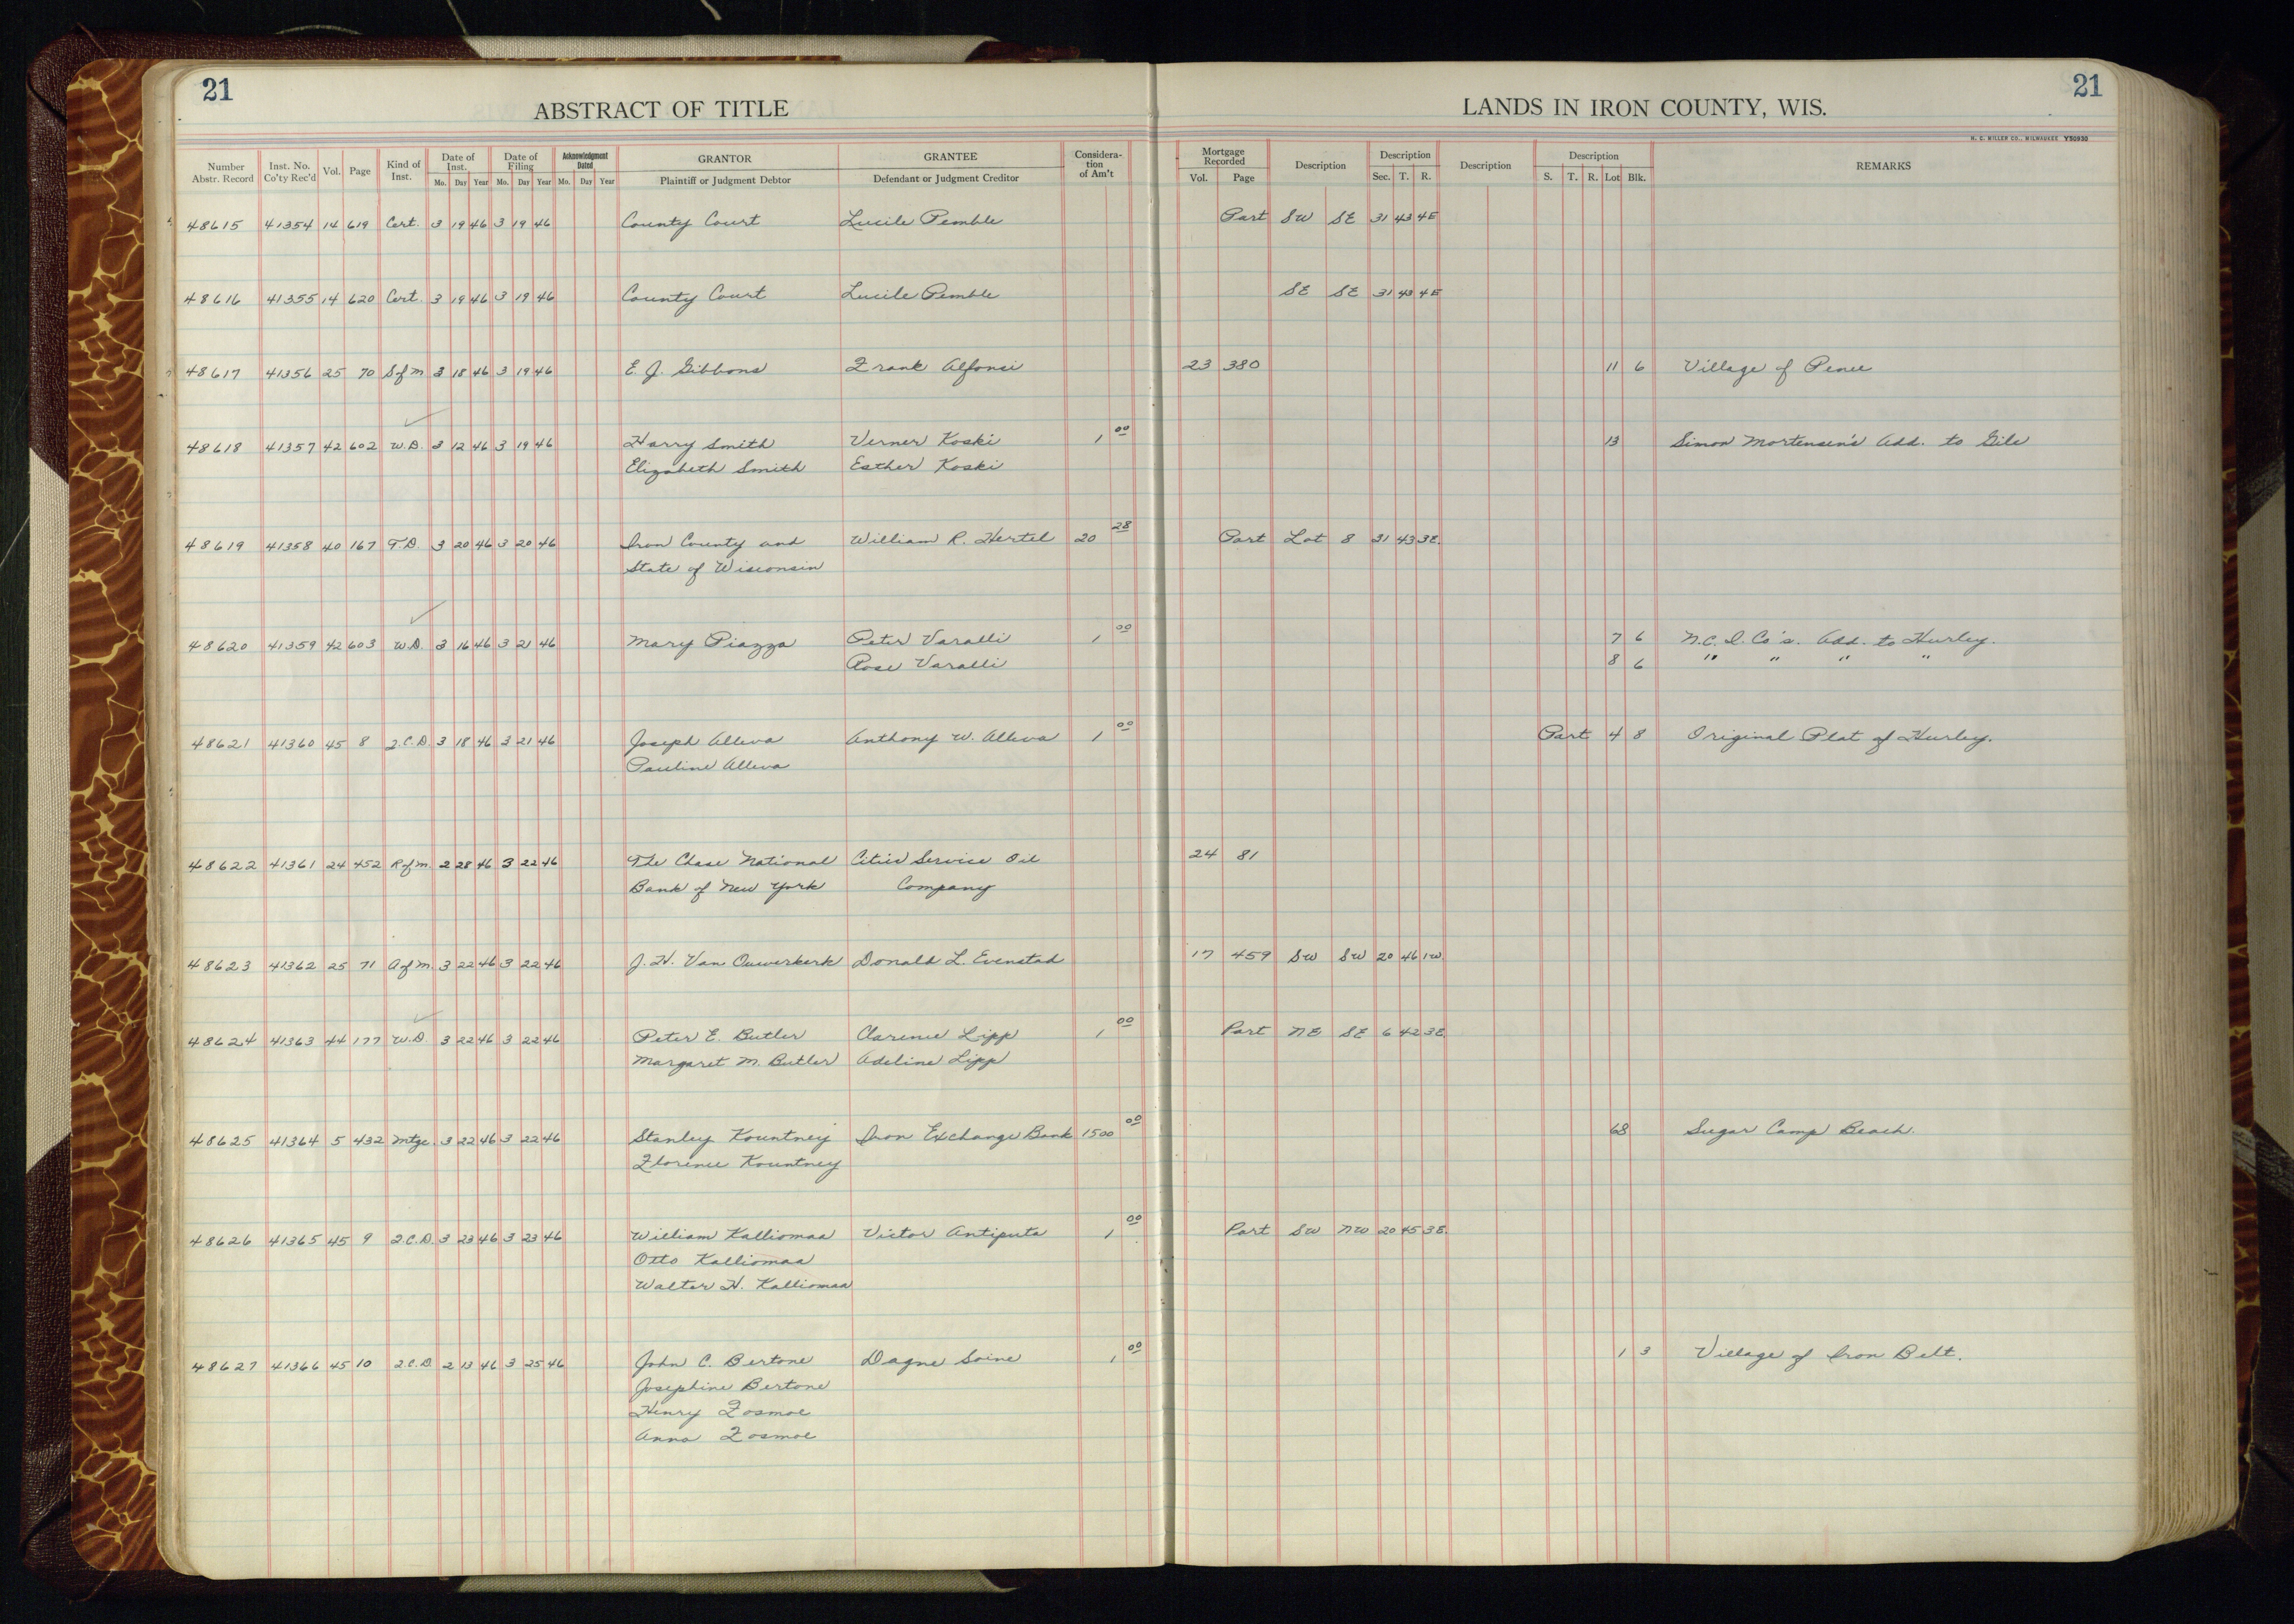 21
21
ABSTRACT OF TITLE
LANDS IN IRON COUNTY, WIS.
N. C. MILLER CO., MILWAUKEE Y50930
Number Abstr. Record Inst. No. Co'ty Rec'd Vol. Page Kind of Inst. Date of Inst. Date of Filing Acknowledgment Dated GRANTOR GRANTEE Considera-tion of Am't Mortgage Recorded Description Description Description Description REMARKS
Mo. Day Year Mo. Day Year Mo. Day Year Plaintiff or Judgment Debtor Defendant or Judgment Creditor Vol. Page Sec. T. R. S. T. R. Lot Blk.
48615 41354 14 619 Cert. 3 19 46 3 19 46 County Court Lucile Pemble Part SW SE 31 43 4E
48616 41355 14 620 Cert. 3 19 46 3 19 46 County Court Lucile Pemble SE SE 31 43 4E
48617 41356 25 70 S of M 3 18 46 3 19 46 E. J. Gibbons Frank Alfonsi 23 380 11 6 Village of Pence
48618 41357 42 602 W.D. 3 12 46 3 19 46 Harry Smith Verner Koski 1 00 13 Simon Mortensen's Add. to Gile
Elizabeth Smith Esther Koski
48619 41358 40 167 T.D. 3 20 46 3 20 46 Iron County and William R. Hertel 20 28 Part Lot 8 31 43 3E
State of Wisconsin
48620 41359 42 603 W.D. 3 16 46 3 21 46 Mary Piazza Peter Varalli 1 00 7 6 N.C.I. Co's. Add. to Hurley.
Rose Varalli 8 6 " " " "
48621 41360 45 8 2.C.D. 3 18 46 3 21 46 Joseph Alleva Anthony W. Alleva 1 00 Part 4 8 Original Plat of Hurley.
Pauline Alleva
48622 41361 24 452 R of M. 2 28 46 3 22 46 The Chase National Cities Service Oil 24 81
Bank of New York Company
48623 41362 25 71 A of M. 3 22 46 3 22 46 J. H. Van Ouwerkerk Donald L. Evenstad 17 459 SW SW 20 46 1W
48624 41363 44 177 W.D. 3 22 46 3 22 46 Peter E. Butler Clarence Lipp 1 00 Part NE SE 6 42 3E
Margaret M. Butler Adeline Lipp
48625 41364 5 432 Mtge. 3 22 46 3 22 46 Stanley Kountney Iron Exchange Bank 1500 00 68 Sugar Camp Beach.
Florence Kountney
48626 41365 45 9 2.C.D. 3 23 46 3 23 46 William Kalliomaa Victor Antiputa 1 00 Part SW NW 20 45 3E
Otto Kalliomaa
Walter H. Kalliomaa
48627 41366 45 10 2.C.D. 2 13 46 3 25 46 John C. Bertone Dagne Soine 1 00 1 3 Village of Iron Belt.
Josephine Bertone
Henry Fosmoe
Anna Fosmoe